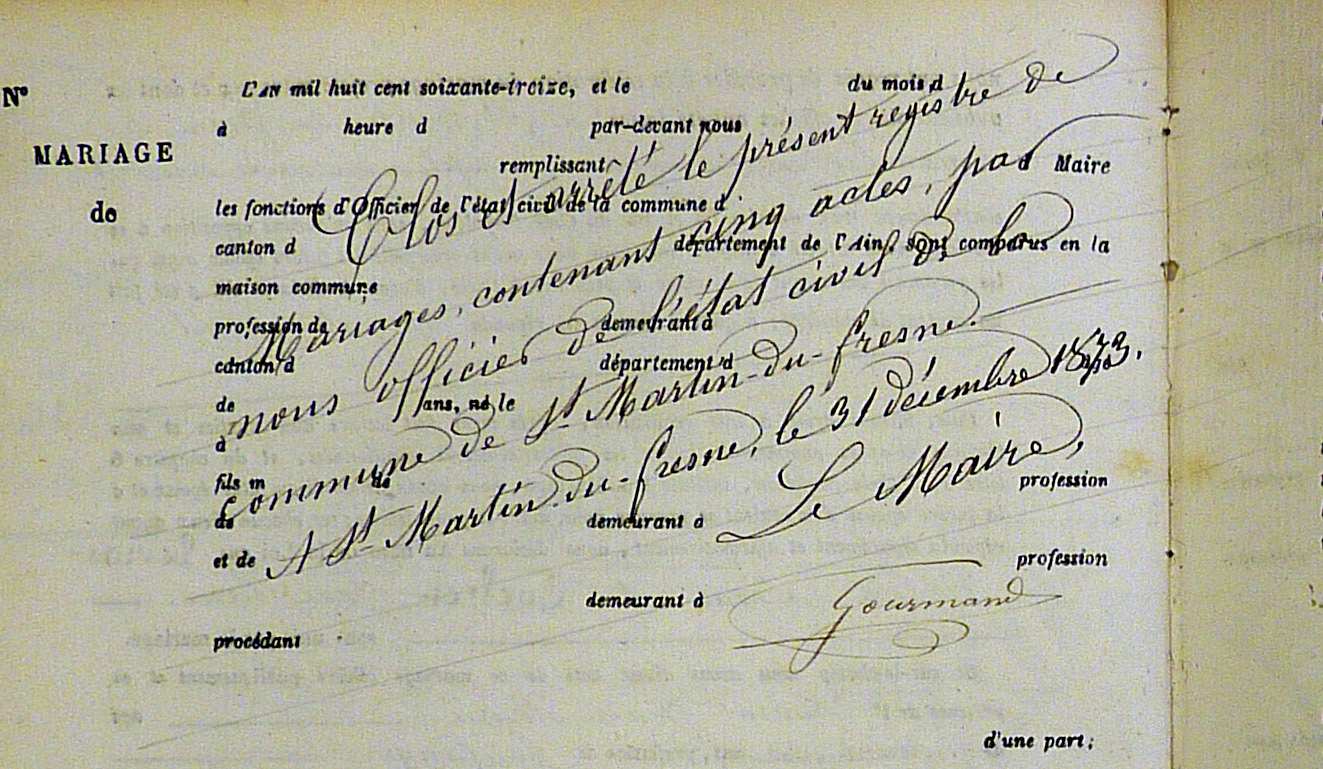 N°
MARIAGE
de
L'AN mil huit cent soixante-treize, et le du mois d
à heure d par-devant nous
remplissant
d Maire
les fonctions d'Officier de l'état civil de la commune d
canton d département de l'Ain, sont comparus en la
maison commune
profession de demeurant à
canton d département d
de ans, né le
à
fils m de profession
de demeurant à
et de profession
demeurant à
procédant
d'une part;
Clos et arrêté le présent registre de
Mariages, contenant cinq actes, par
nous officier de l'état civil de la
commune de St Martin-du-fresne.
A St Martin-du-fresne, le 31 décembre 1873.
Le Maire,
Gourmand